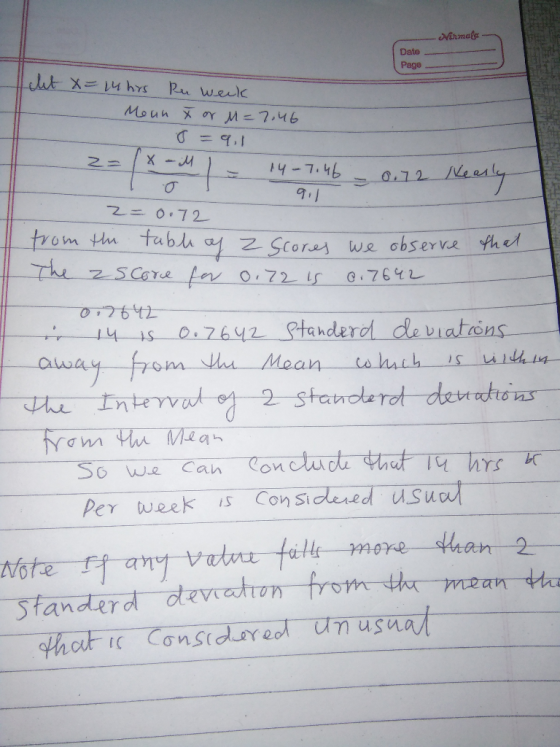 Nirmala
Date
Page
Let X = 14 hrs Per week
Mean x̄ or M = 7.46
σ = 9.1
Z = |X - M / σ| = 14 - 7.46 / 9.1 = 0.72 Nearly
Z = 0.72
from the table of Z Scores we observe that
The Z SCore for 0.72 is 0.7642
0.7642
∴ 14 is 0.7642 Standerd deviations
away from the Mean which is within
the Interval of 2 standerd deviations
from the Mean
So we can Conclude that 14 hrs
Per week is Considered usual
Note If any value falls more than 2
Standerd deviation from the mean the
that is Considered unusual